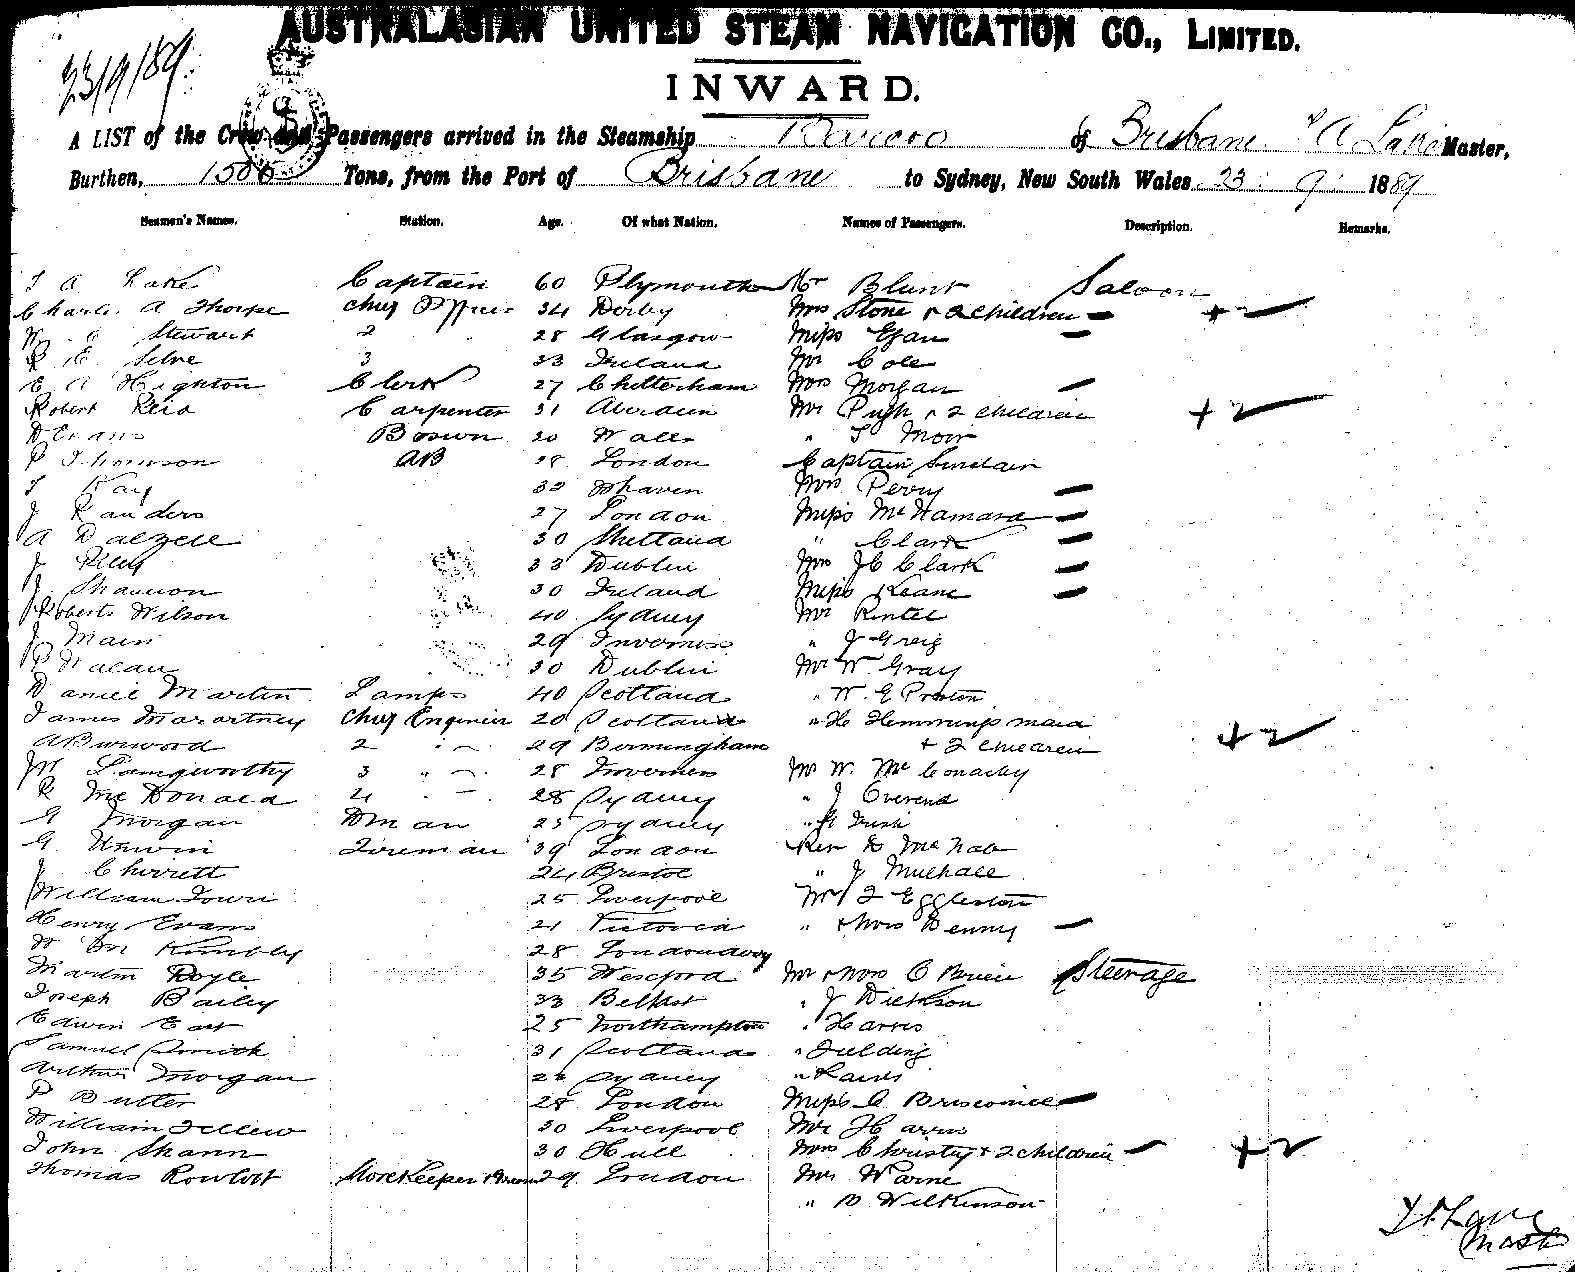 AUSTRALASIAN UNITED STEAM NAVIGATION CO., LIMITED.
23/9/89
INWARD.
A LIST of the Crew and Passengers arrived in the Steamship Barcoo of Brisbane Master,
Burthen, 1500 Tons, from the Port of Brisbane to Sydney, New South Wales 23 9 1889
Seamen's Names. Station. Age. Of what Nation. Names of Passengers. Description. Remarks.
A Lake Captain 60 Plymouth Mr Blunt Saloon
Charles A Thorpe Chief Officer 34 Derby Mrs Stone + 2 children + 2
Stewart 2 28 Glasgow Miss Egan
3 33 Ireland Mr Cole
E A Highton Clerk 27 Cheltenham Mrs Morgan
Robert Reid Carpenter 31 Aberdeen Mr Pugh + 2 children + 2
D Evans Bosun 20 Wales " Moir
P Thomson AB 28 London Captain Sinclair
Kay 32 Whaven Mrs Perry
J Randers 27 London Miss McNamara
A Dalzell 30 Shetland " Clark
J 33 Dublin Mrs J C Clark
J Shannon 30 Ireland Miss Keane
Roberts Wilson 40 Sydney Mr Rintel
J Main 29 Inverness " J Greig
P 30 Dublin Mr W Gray
Daniel Martin Lamps 40 Scotland " W. G Preston
James Macartney Chief Engineer 20 Scotland " Hemmings maid
A Burwood 2 " 29 Birmingham + 2 children + 2
Langworthy 3 " 28 Inverness Mr W. McConachy
R McDonald 4 28 Sydney " J Overend
G Morgan Dman 25 Sydney "
G Unwin Fireman 39 London Rev D McNab
J Chivrett 24 Bristol " J Mulhall
William Town 25 Liverpool Mr Eggleston
Henry Evans 21 Victoria " + Mrs Denny
W Kimbley 28 Londonderry
Martin Doyle 35 Wexford Mr + Mrs O Brien Steerage
Joseph Bailey 33 Belfast " J Dickson
Edwin East 25 Northampton " Harris
Samuel Smith 31 Scotland " Fielding
Arthur Morgan Sydney "
P Butler 28 London Miss
William Fellew 30 Liverpool Mr Harris
John Shann 30 Hull Mrs Christy + 2 children + 2
Thomas Rowbot Storekeeper 29 London Mr Warne
" B Wilkinson